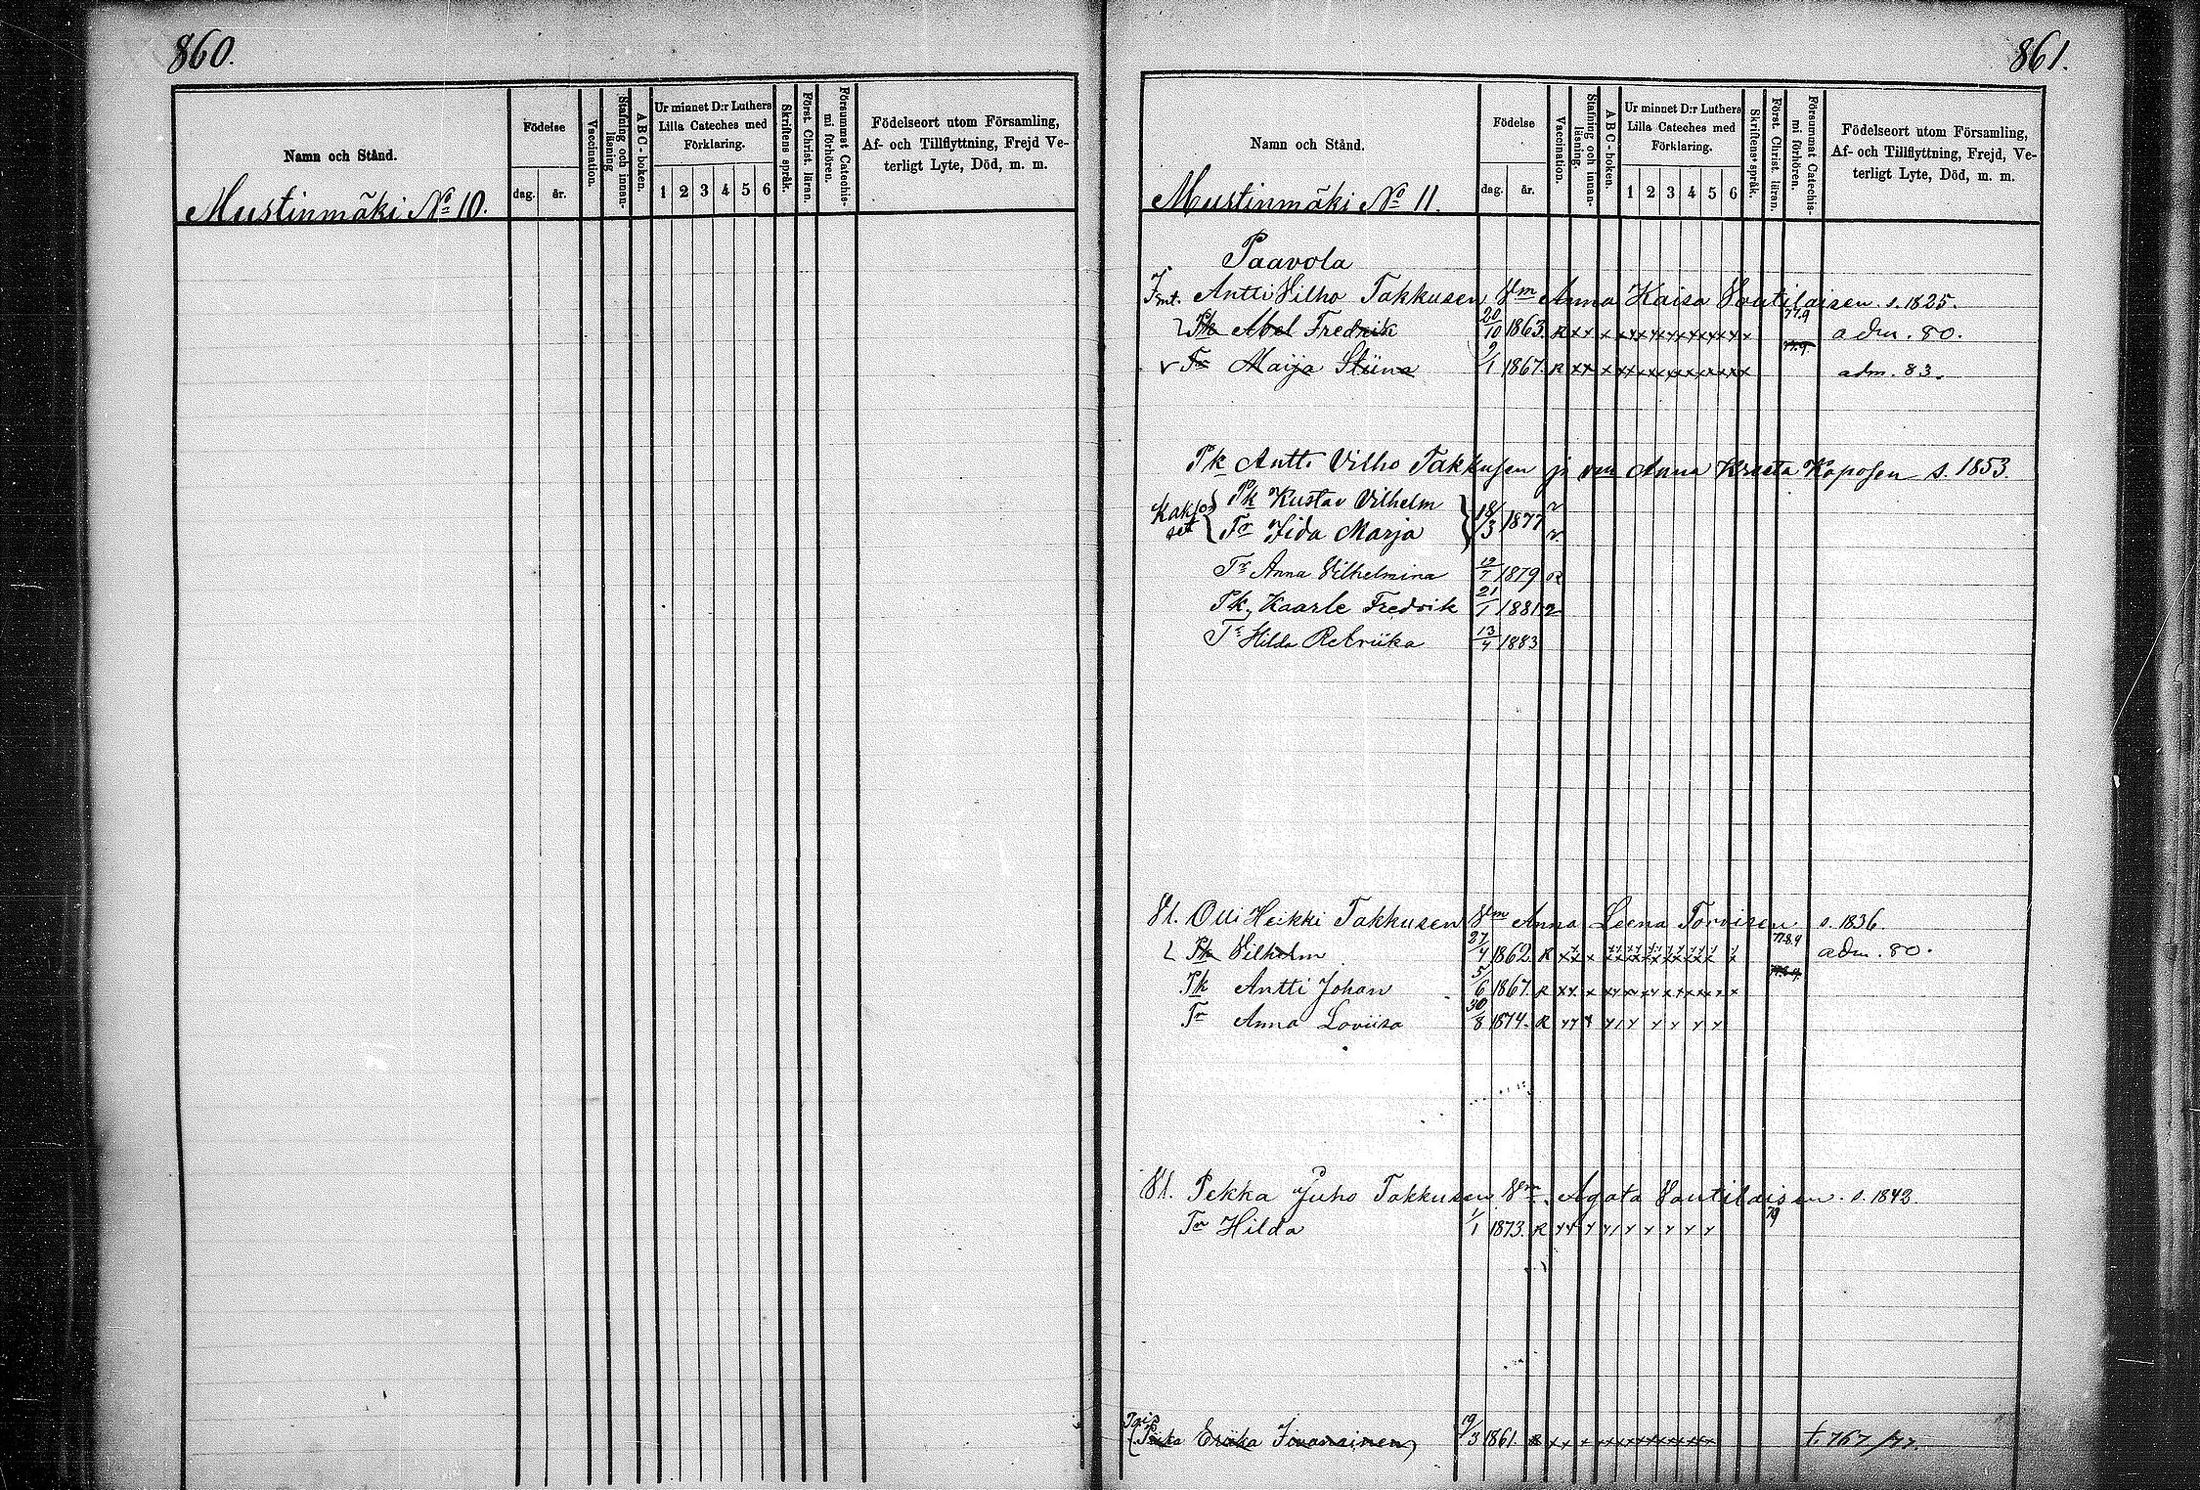 860.
Namn och Stånd.
Födelse
dag.
år.
Vaccination.
Stafning och innan-
läsning
A B C-boken.
Ur minnet D:r Luthers
Lilla Cateches med
Förklaring.
1 2 3 4 5 6
Skriftens språk.
Först. Christ. läran.
Försummat Catechis-
mi förhören.
Födelseort utom Församling,
Af- och Tillflyttning, Frejd Ve-
terligt Lyte, Död, m. m.
Mustinmäki No 10.
861.
Namn och Stånd.
Födelse
dag.
år.
Vaccination.
Stafning och innan-
läsning.
A B C-boken.
Ur minnet D:r Luthers
Lilla Cateches med
Förklaring.
1 2 3 4 5 6
Skriftens språk.
Först. Christ. läran.
Försummat Catechis-
mi förhören.
Födelseort utom Församling,
Af- och Tillflyttning, Frejd, Ve-
terligt Lyte, Död, m. m.
Mustinmäki No 11.
Paavola
Antti Vilho Takkusen Vm Anna Kaisa Voutilaisen s. 1825.
Pk Abel Fredrik 20/10 1863. R xx x xxxxxxxxxxxx 77.9 adm. 80.
Tr Maija Stiina 9/1 1867. R xx x xxxxxxxxxxxx adm. 83.
Pk Antti Vilho Takkusen ja vm Anna Kreeta Koposen s. 1853.
Kakso
set
Pk Kustav Vilhelm
Tr Iida Marja
18/3 1877
Tr Anna Vilhelmina 12/7 1879
Pk Kaarle Fredrik 21/1 1881
Tr Hilda Rebriika 13/4 1883
Vl. Olli Heikki Takkusen Vm Anna Leena Torvisen s. 1836.
Pk Vilhelm 27/4 1862. R 77.8.9 adm. 80.
Pk Antti Johan 5/6 1867. R
Tr Anna Loviisa 30/8 1874. R
Vl. Pekka Juho Takkusen Vm. Agata Voutilaisen. s. 1842
Tr Hilda 1/1 1873. R 79
(Piika Eriika Iivanainen) 19/3 1861. R t. 767/77.